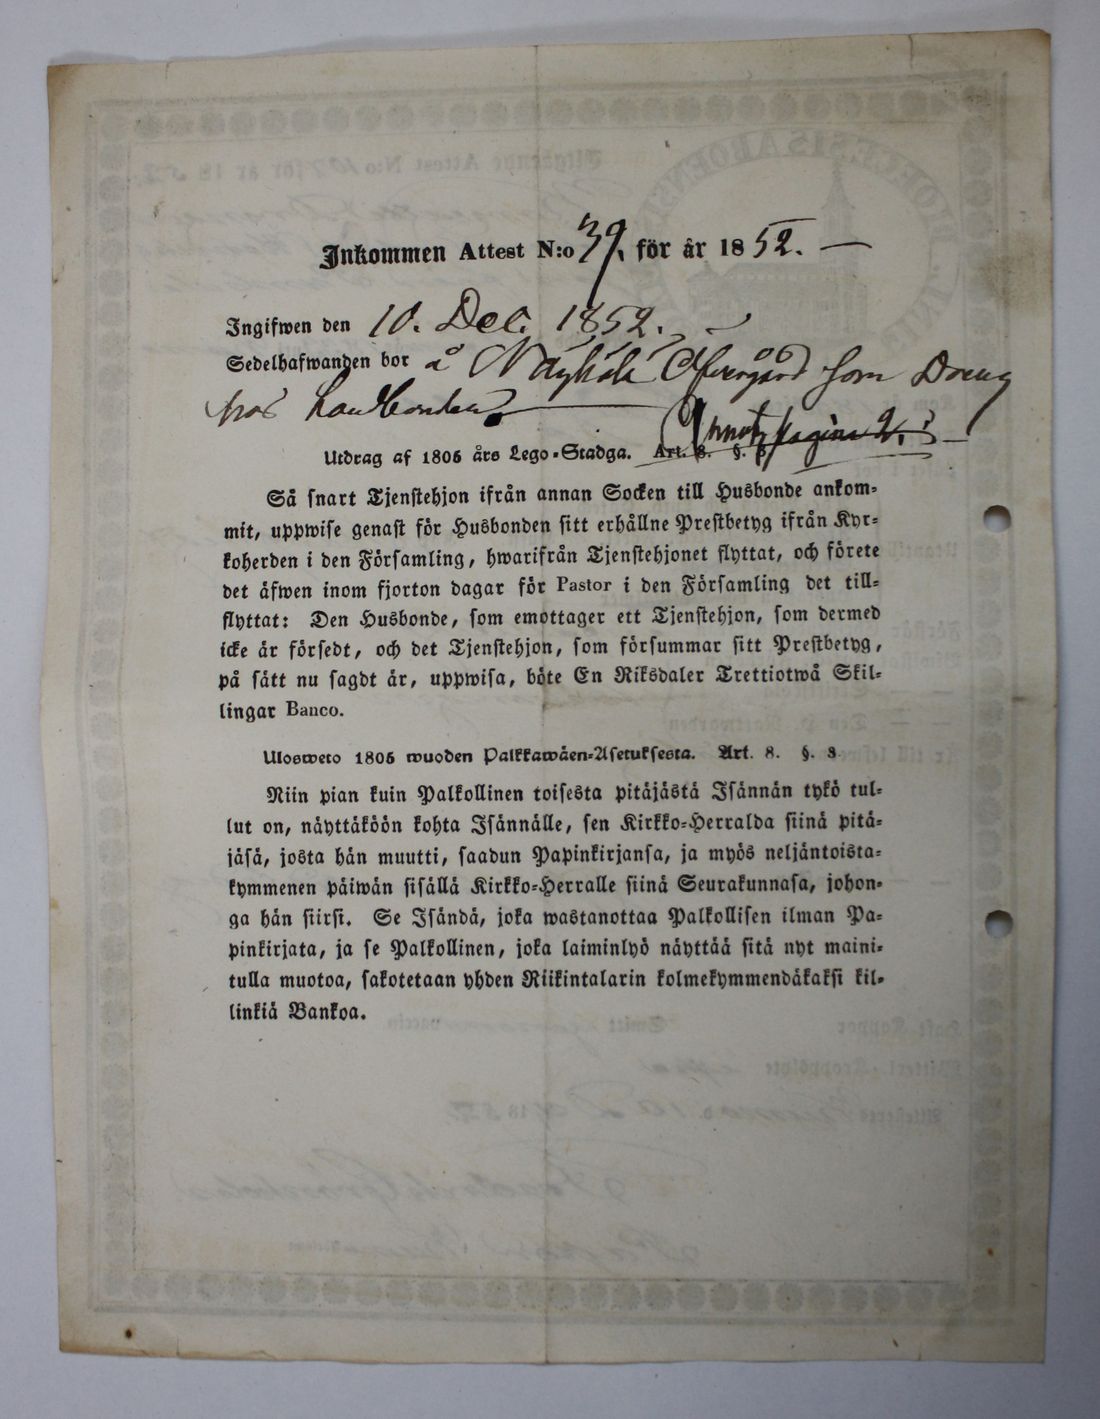 Inkommen Attest N:o 39. för år 1852. —
Ingifwen den 10. Dec. 1852. —
Sedelhafwanden bor å Näyhälä Öfvergård som Dreng
hos Landbonden
Annot. pagina 2.
Utdrag af 1805 års Lego-Stadga. Art. 8. §. 8
Så snart Tjenstehjon ifrån annan Socken till Husbonde ankom-
mit, uppwise genast för Husbonden sitt erhållne Prestbetyg ifrån Kyr-
koherden i den Församling, hwarifrån Tjenstehjonet flyttat, och förete
det äfwen inom fjorton dagar för Pastor i den Församling det till-
flyttat: Den Husbonde, som emottager ett Tjenstehjon, som dermed
icke är försedt, och det Tjenstehjon, som försummar sitt Prestbetyg,
på sätt nu sagdt är, uppwisa, böte En Riksdaler Trettiotwå Skil-
lingar Banco.
Ulosweto 1805 wuoden Palkkawäen-Asetuksesta. Art. 8. §. 8
Niin pian kuin Palkollinen toisesta pitäjästä Isännän tykö tul-
lut on, näyttäköön kohta Isännälle, sen Kirkko-Herralda siinä pitä-
jäsä, josta hän muutti, saadun Papinkirjansa, ja myös neljäntoista-
kymmenen päiwän sisällä Kirkko-Herralle siinä Seurakunnasa, johon-
ga hän siirsi. Se Isändä, joka wastanottaa Palkollisen ilman Pa-
pinkirjata, ja se Palkollinen, joka laiminlyö näyttää sitä nyt maini-
tulla muotoa, sakotetaan yhden Riikintalarin kolmekymmendäkaksi kil-
linkiä Bankoa.